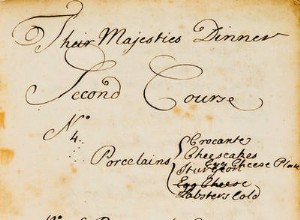 Their Majesties Dinner
Second Course
No
4.
Porcelains
Crocante
Cheescakes
Egg Cheese Plate
Sturgeon
Egg Cheese
Lobsters Cold